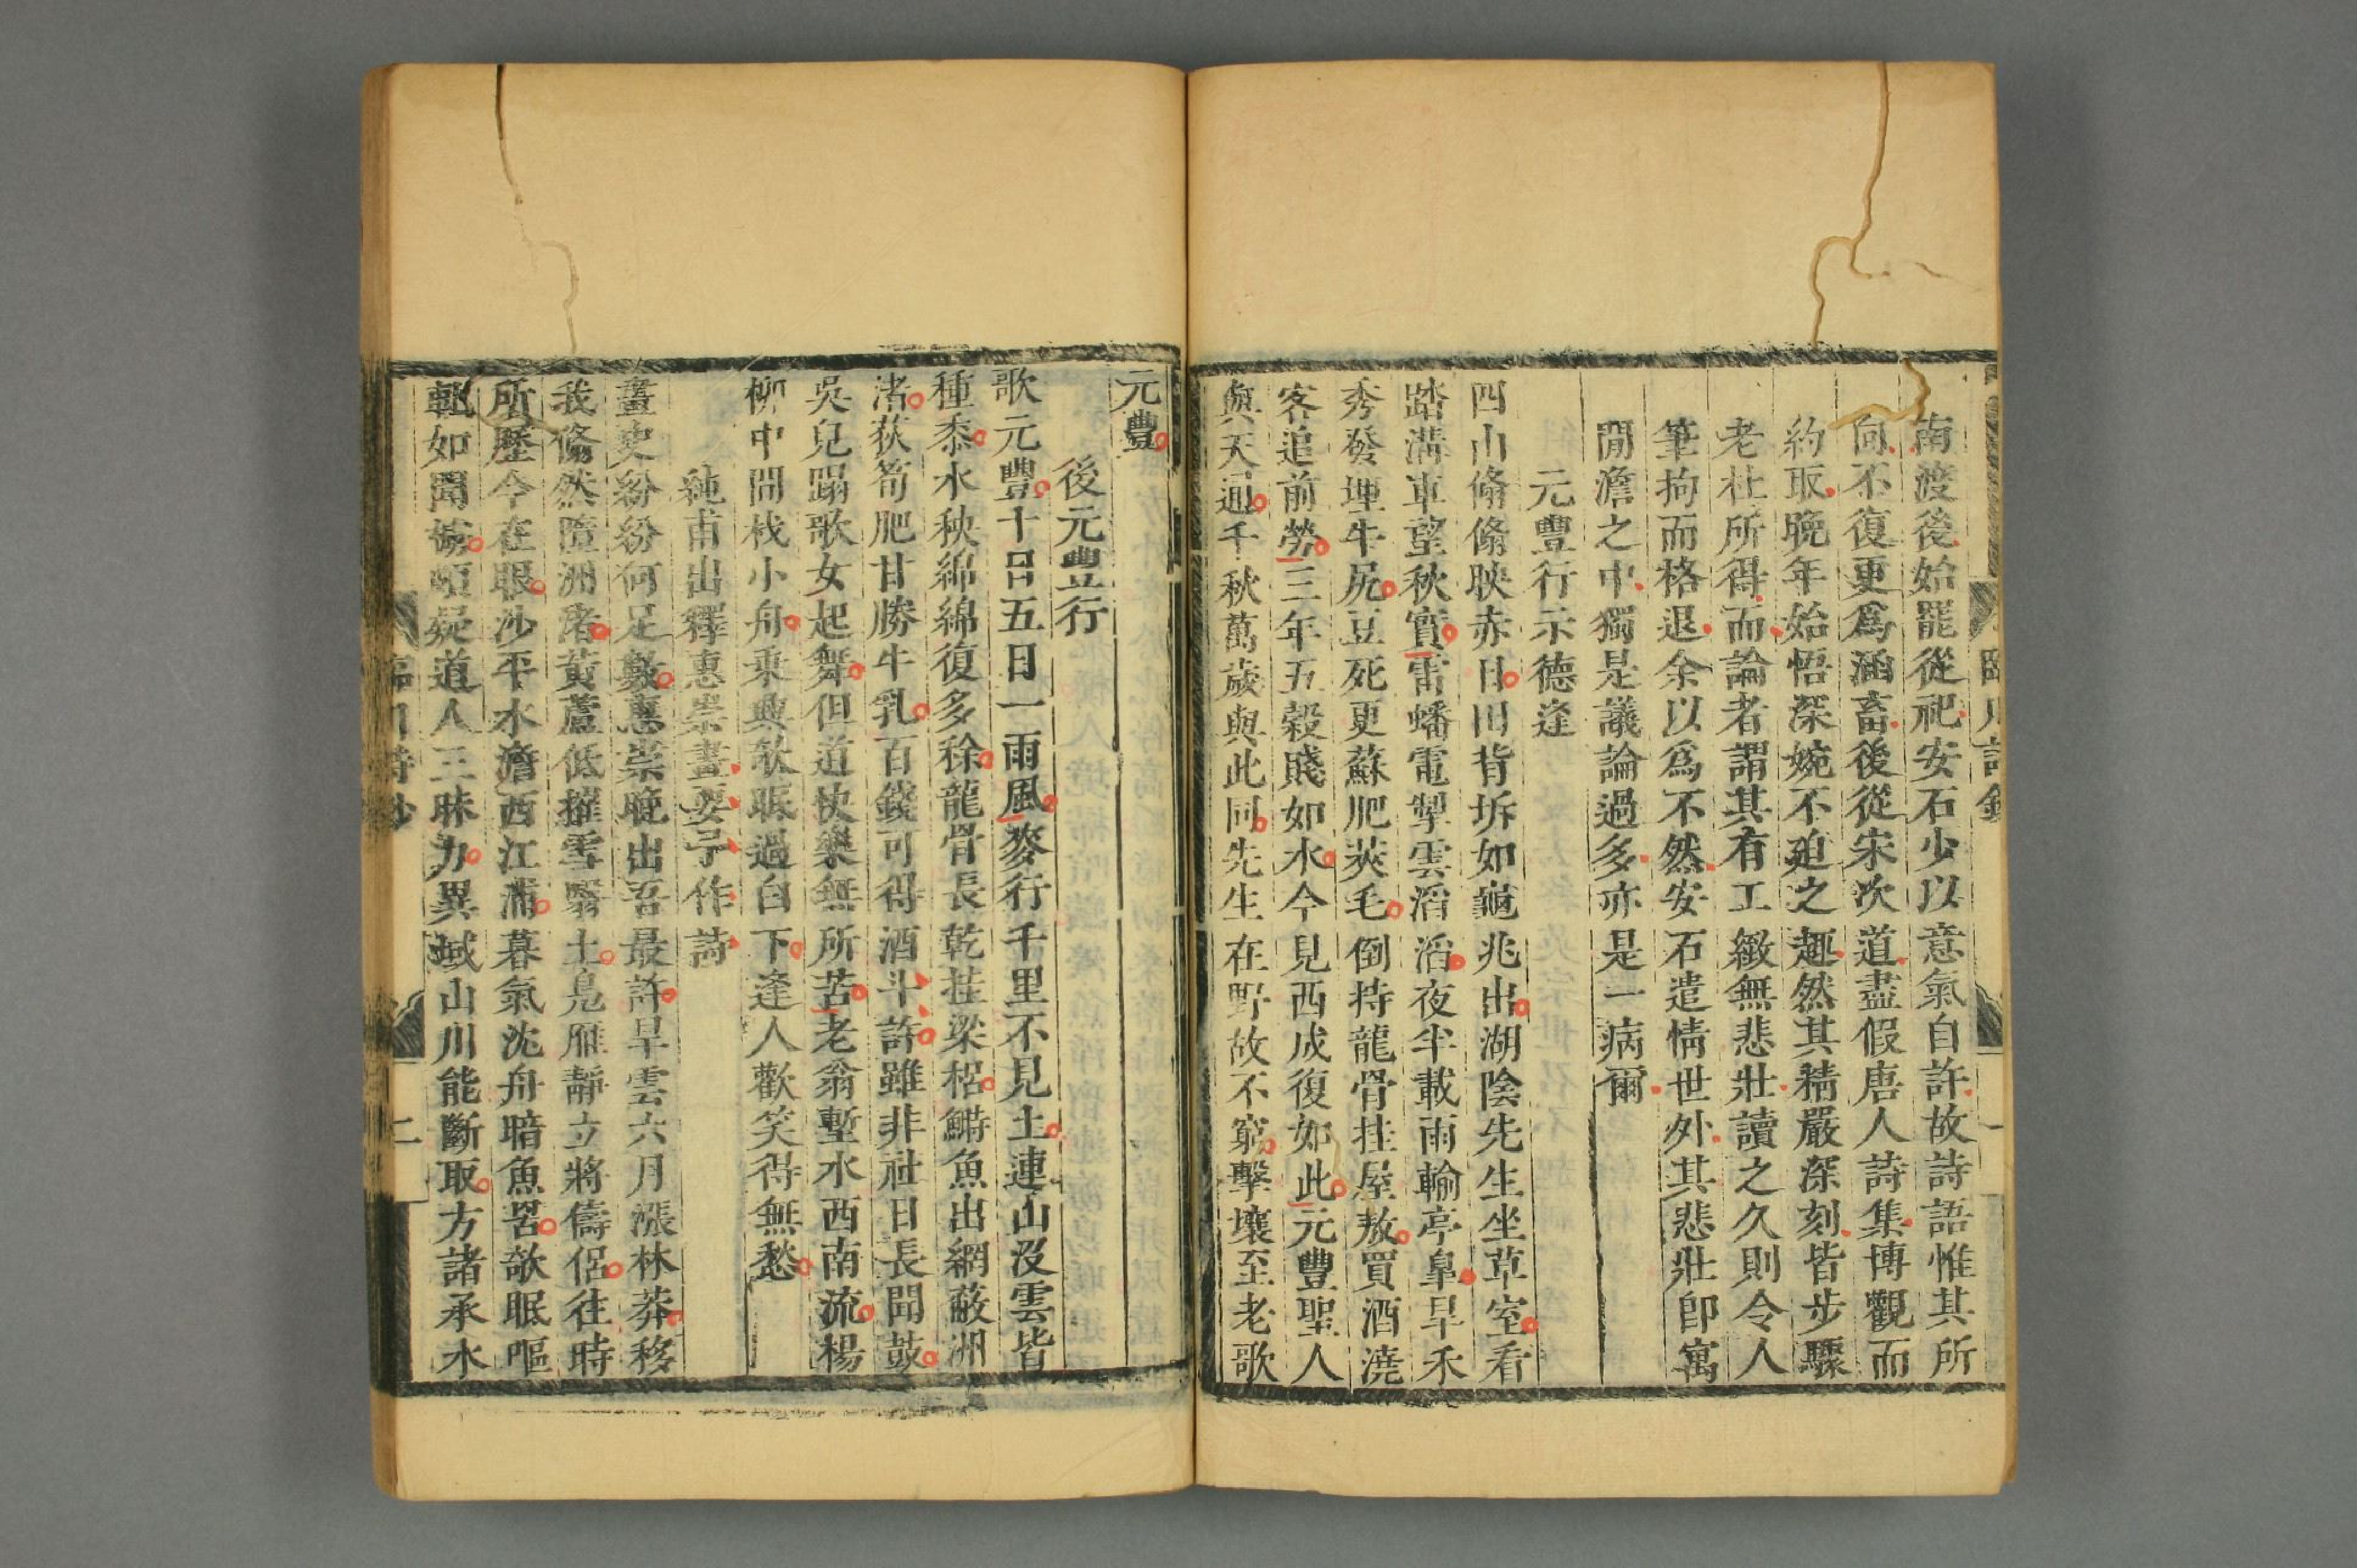 南渡後始罷從祀安石少以意氣自許故詩語惟其所
向不復更爲涵畜後從宋次道盡假唐人詩集博觀而
約取晚年始悟深婉不迫之趣然其精嚴深刻皆步驟
老杜所得而論者謂其有工緻無悲壯讀之久則令人
筆拘而格退余以爲不然安石遣情世外其悲壯卽寓
閒澹之中獨是議論過多亦是一病爾
元豐行示德逢
四山翛翛映赤日田背坼如龜兆出湖陰先生坐草室看
踏溝車望秋實雷蟠電掣雲滔滔夜半載雨輸亭皐旱禾
秀發埋牛尻豆死更蘇肥莢毛倒持龍骨挂屋敖買酒澆
客追前勞三年五穀賤如水今見西成復如此元豐聖人
與天通千秋萬歲與此同先生在野故不窮擊壤至老歌
元豐
後元豐行
歌元豐十日五日一雨風麥行千里不見土連山沒雲皆
種黍水秧綿綿復多稌龍骨長乾挂梁梠鰣魚出網蔽洲
渚荻筍肥甘勝牛乳百錢可得酒斗許雖非社日長聞鼓
吳兒蹋歌女起舞但道快樂無所苦老翁塹水西南流楊
柳中間杙小舟乘興欹眠過白下逢人歡笑得無愁
純甫出釋惠崇畫要予作詩
畫史紛紛何足數惠崇晚出吾最許旱雲六月漲林莽移
我翛然墮洲渚黃蘆低摧雪翳土鳧雁靜立將儔侶往時
所歷今在眼沙平水澹西江浦暮氣沈舟暗魚罟欹眠嘔
軋如聞櫓頗疑道人三昧力異域山川能斷取方諸承水
臨川詩鈔
二